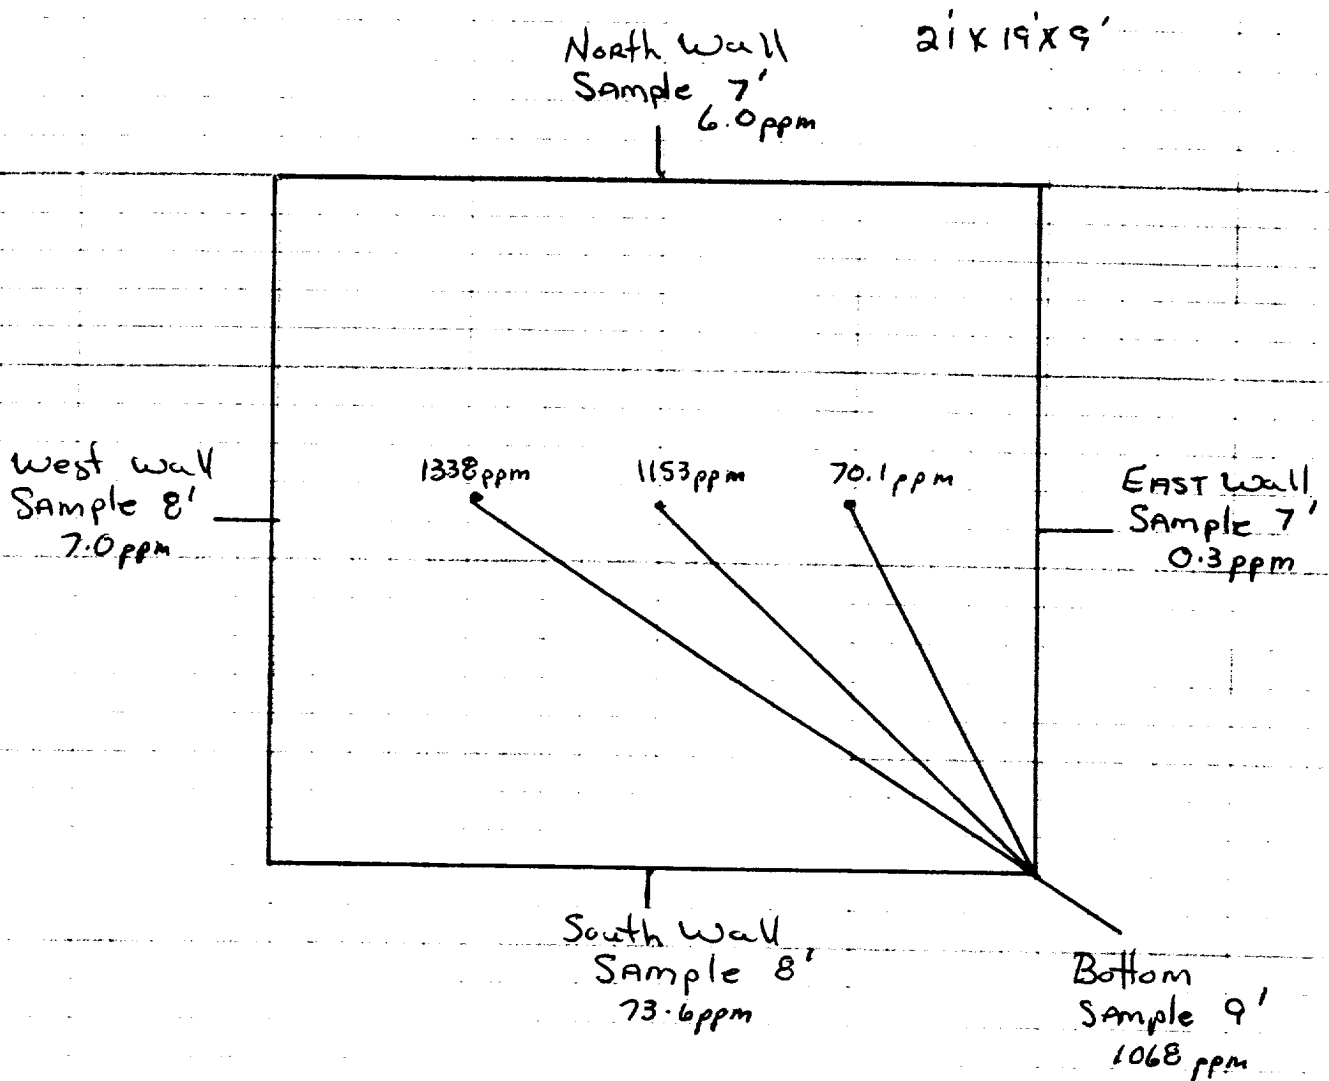 21' X 19' X 9'
North Wall
Sample 7'
6.0 ppm
West Wall
Sample 8'
7.0 ppm
1338 ppm
1153 ppm
70.1 ppm
East Wall
Sample 7'
0.3 ppm
South Wall
Sample 8'
73.6 ppm
Bottom
Sample 9'
1068 ppm